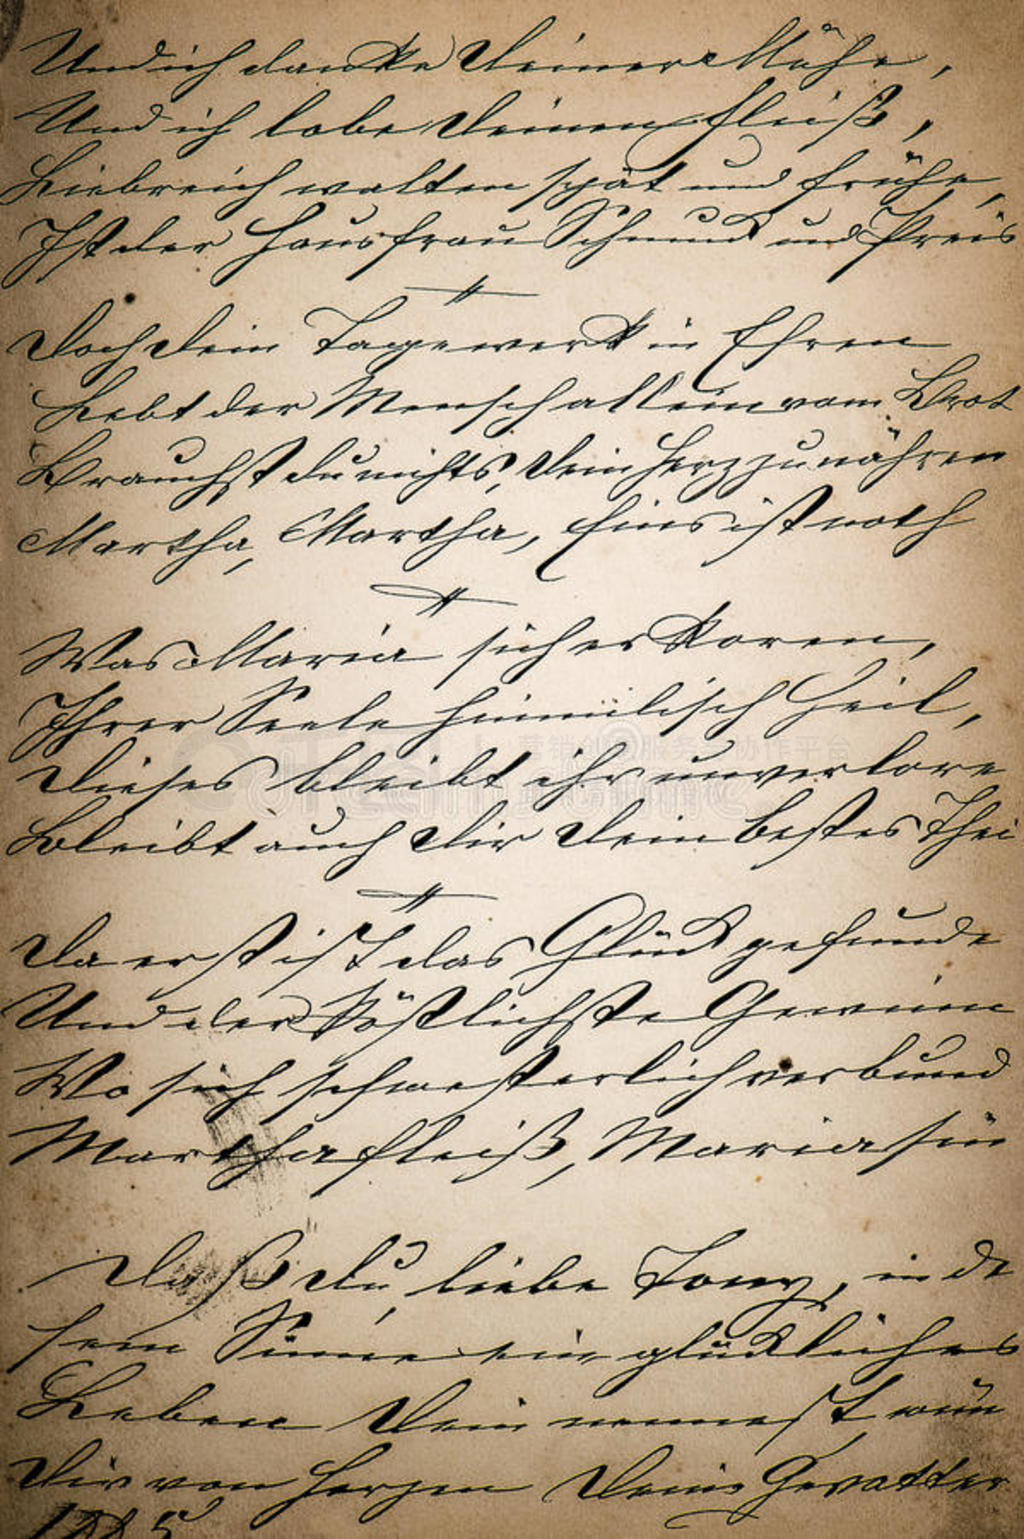 Und ich danke Deiner Mühe,
Und ich lobe Deinen Fleiß,
Liebreich walten spät und frühe,
Ist der Hausfrau Schmuck und Preis
Doch Dein Tagewerk in Ehren
Lebt der Mensch allein vom Brot
Brauchst du nichts, Dein Herz zu nähren
Martha, Martha, Eins ist noth
Was Maria sich erkoren,
Ihrer Seele himmlisch Heil,
Dieses bleibt ihr unverlore
Bleibt auch Dir Dein bestes Thei
Da erst ist das Glück gefunde
Und der köstlichste Gewinn
Wo sich schwesterlich verbund
Marthafleiß, Mariasin
Daß Du liebe Tony, in de
sem Sinne ein glückliches
Leben Dein nennest, wün
Dir von Herzen Dein Gevatter
1885